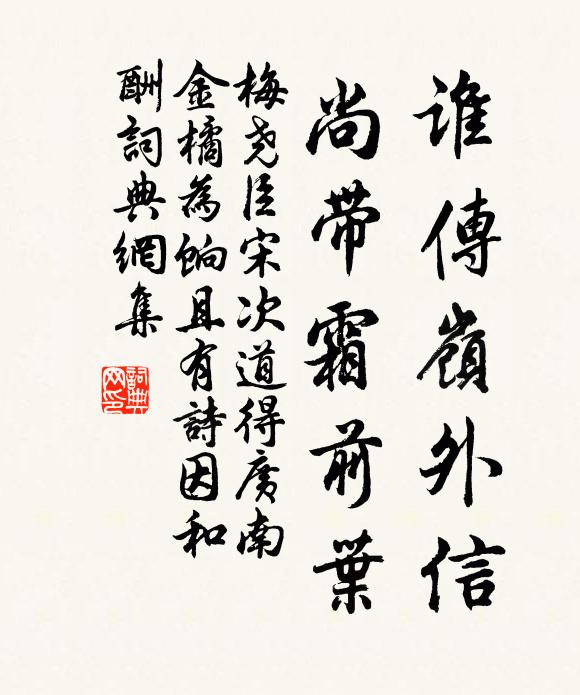 誰傳嶺外信
尚帶霜前葉
梅尧臣宋次道得廣南
金橘為餉且有詩因和
酬詞典網集
詞典
网印